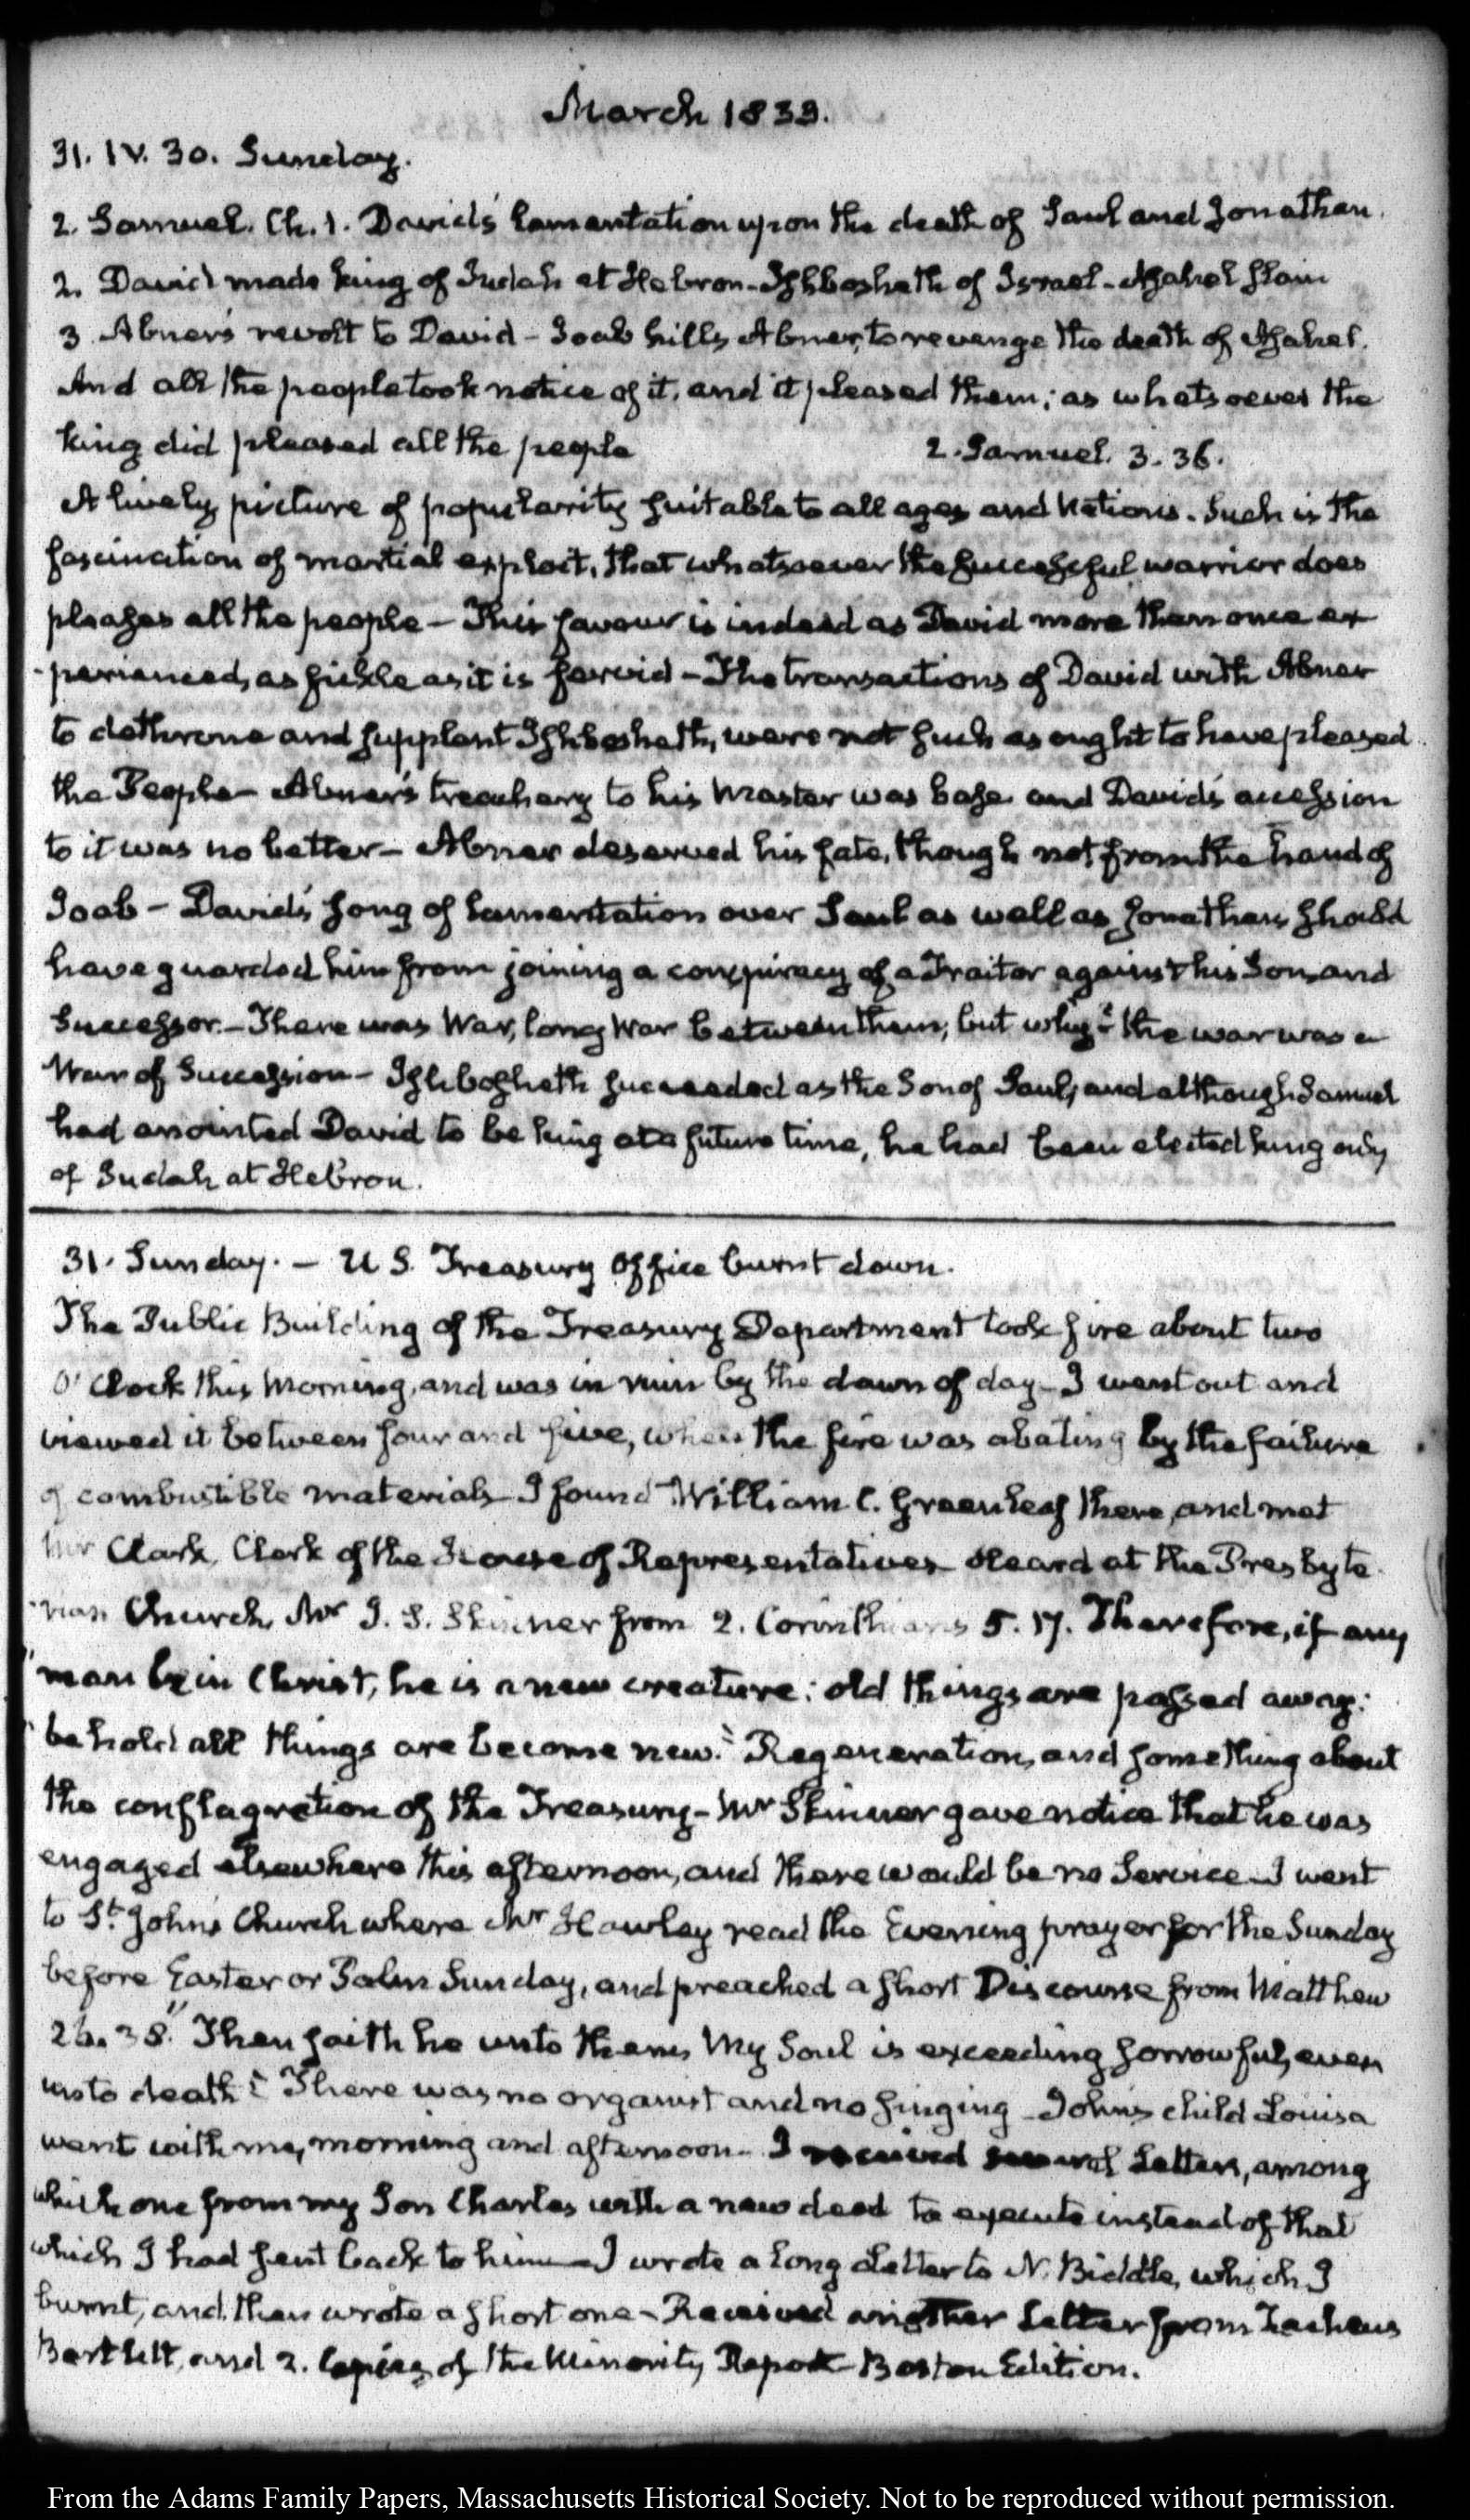 March 1833.
31. IV. 30. Sunday.
2. Samuel. Ch. 1. David's Lamentation upon the death of Saul and Jonathan.
2. David made king of Judah at Hebron - Ishbosheth of Israel - Asahel slain
3 Abner's revolt to David - Joab kills Abner, to revenge the death of Asahel.
And all the people took notice of it, and it pleased them; as whatsoever the
king did pleased all the people 2. Samuel. 3. 36.
A lively picture of popularity suitable to all ages and Nations. Such is the
fascination of martial exploit, that whatsoever the successful warrior does
pleases all the people - This favour is indeed as David more than once ex
-perienced, as fickle as it is fervid - The transactions of David with Abner
to dethrone and supplant Ishbosheth, were not such as ought to have pleased
the People - Abner's treachery to his Master was base and David's accession
to it was no better - Abner deserved his fate, though not from the hand of
Joab - David's song of lamentation over Saul as well as Jonathan should
have guarded him from joining a conspiracy of a Traitor against his Son, and
Successor. - There was War, long War between them; but why? the war was a
War of Succession - Ishbosheth succeeded as the Son of Saul, and although Samuel
had anointed David to be king at a future time, he had been elected king only
of Judah at Hebron.
31. Sunday. - U S. Treasury Office burnt down.
The Public Building of the Treasury Department took fire about two
O'Clock this Morning, and was in ruin by the dawn of day - I went out and
viewed it between four and five, when the fire was abating by the failure
of combustible materials - I found William C. Greenleaf there, and met
Mr Clark, Clerk of the House of Representatives - Heard at the Presbyte
-rian Church, Mr I. S. Skinner from 2. Corinthians 5. 17. Therefore, if any
"man be in Christ, he is a new creature: old things are passed away:
"behold all things are become new." Regeneration, and something about
the conflagration of the Treasury - Mr Skinner gave notice that he was
engaged elsewhere this afternoon, and there would be no Service - I went
to St. John's Church where Mr Hawley read the Evening prayer for the Sunday
before Easter or Palm Sunday, and preached a short Discourse from Matthew
26. 38. "Then saith he unto them, My Soul is exceeding sorrowful, even
unto death" There was no organist and no singing - John's child Louisa
went with me, morning and afternoon - I received several Letters, among
which one from my Son Charles with a new deed to execute instead of that
which I had sent back to him - I wrote a long Letter to N. Biddle, which I
burnt, and then wrote a short one - Received another Letter from Zacheus
Bartlett, and 2. Copies of the Minority Report - Boston Edition.
From the Adams Family Papers, Massachusetts Historical Society. Not to be reproduced without permission.